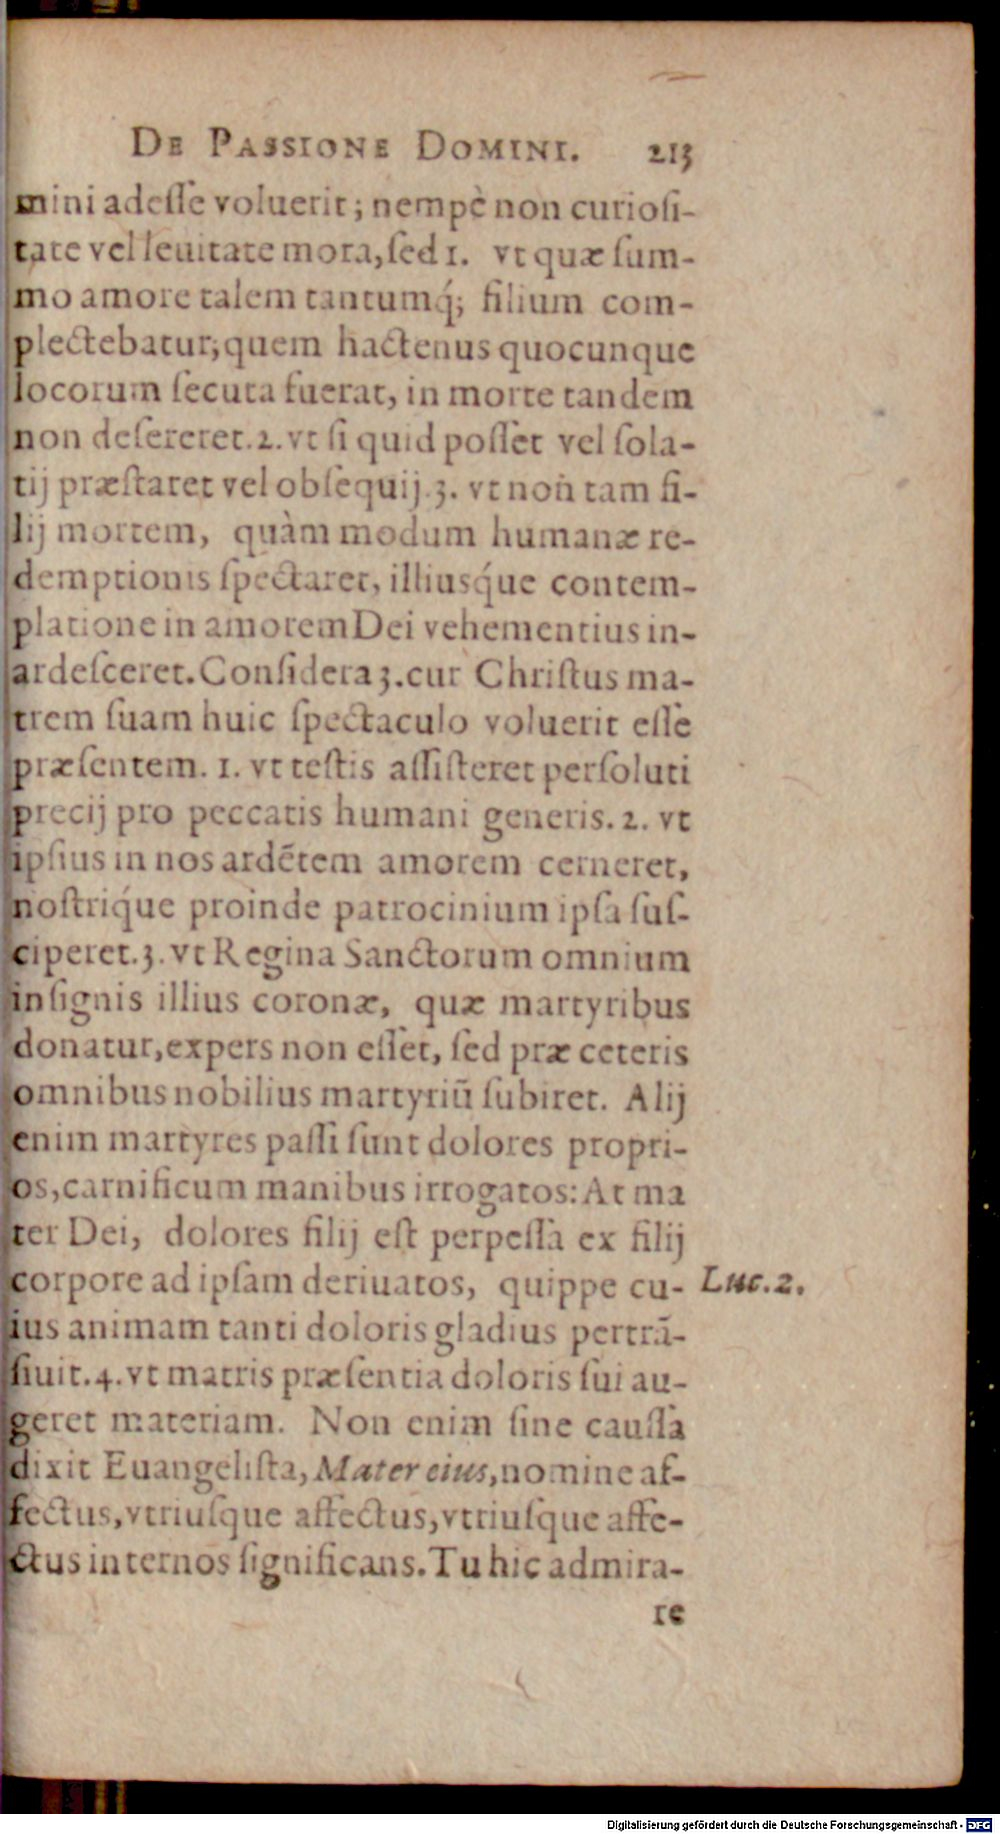 DE PASSIONE DOMINI. 213
mini adeſſe voluerit; nempè non curioſi-
tate vel leuitate mota, ſed 1. vt quæ ſum-
mo amore talem tantumq́; filium com-
plectebatur, quem hactenus quocunque
locorum ſecuta fuerat, in morte tandem
non deſereret. 2. vt ſi quid poſſet vel ſola-
tij præſtaret vel obſequij. 3. vt non tam fi-
lij mortem, quàm modum humanæ re-
demptionis ſpectaret, illiusq́ue contem-
platione in amorem Dei vehementius in-
ardeſceret. Conſidera 3. cur Chriſtus ma-
trem ſuam huic ſpectaculo voluerit eſſe
præſentem. 1. vt teſtis aſſiſteret perſoluti
precij pro peccatis humani generis. 2. vt
ipſius in nos ardētem amorem cerneret,
noſtriq́ue proinde patrocinium ipſa ſuſ-
ciperet. 3. vt Regina Sanctorum omnium
inſignis illius coronæ, quæ martyribus
donatur, expers non eſſet, ſed præ ceteris
omnibus nobilius martyriū ſubiret. Alij
enim martyres paſſi ſunt dolores propri-
os, carnificum manibus irrogatos: At ma
ter Dei, dolores filij eſt perpeſſa ex filij
corpore ad ipſam deriuatos, quippe cu-
Luc. 2.
ius animam tanti doloris gladius pertrā-
ſiuit. 4. vt matris præſentia doloris ſui au-
geret materiam. Non enim ſine cauſſa
dixit Euangeliſta, Mater eius, nomine af-
fectus, vtriuſque affectus, vtriuſque affe-
ctus internos ſignificans. Tu hic admira-
re
Digitalisierung gefördert durch die Deutsche Forschungsgemeinschaft - DFG